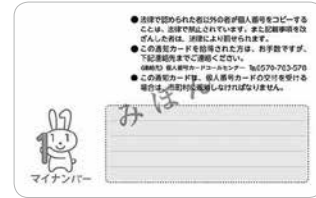 ●法律で認められた者以外の者が個人番号をコピーする
ことは、法律で禁止されています。また記載事項を改
ざんした者は、法律により罰せられます。
●この通知カードを拾得された方は、お手数ですが、
下記連絡先までご連絡ください。
《連絡先》個人番号カードコールセンター ℡0570-783-578
●この通知カードは、個人番号カードの交付を受ける
場合は、市町村に返納しなければなりません。
みほん
マイナンバー